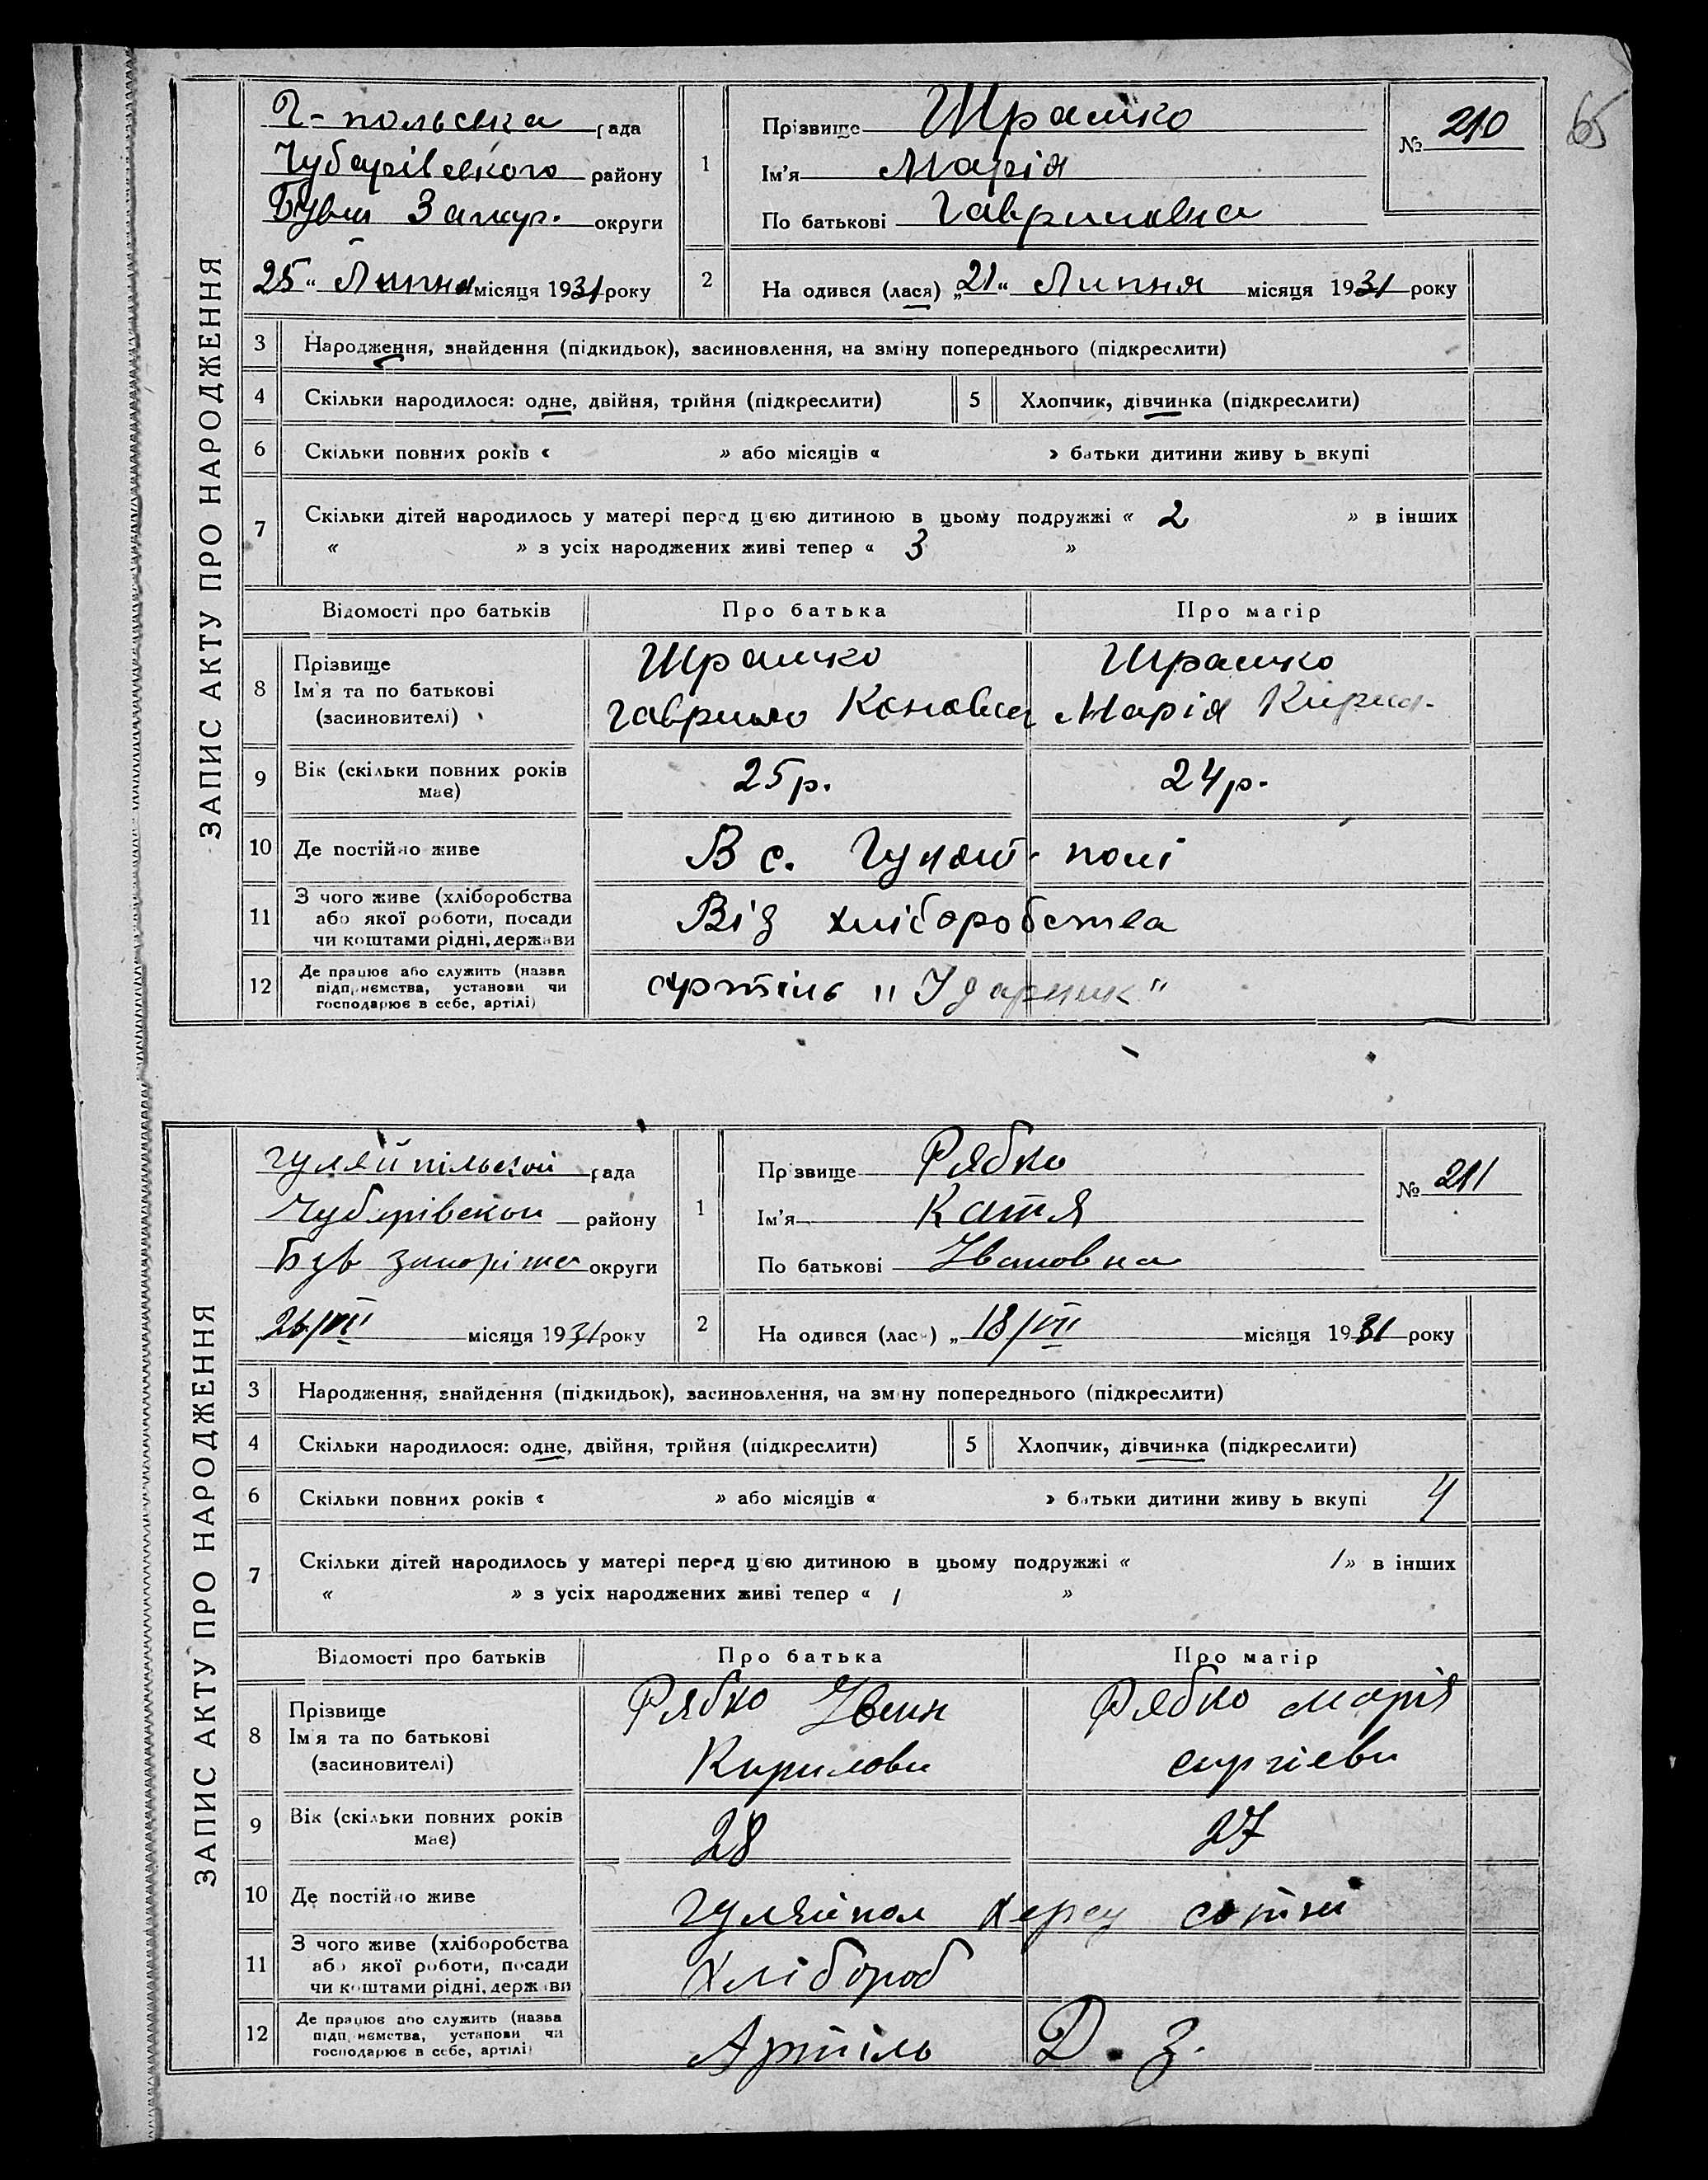 65
ЗАПИС АКТУ ПРО НАРОДЖЕННЯ
Г-польська рада
Чубарівського району
Бувш Запор. округи
25 " Липня місяця 1931 року
1 Прізвище Шрамко
Ім'я Марія
По батькові Гавриловна
№ 210
2 На одився (лася) „21" Липня місяця 1931 року
3 Народження, знайдення (підкидьок), засиновлення, на зміну попереднього (підкреслити)
4 Скільки народилося: одне, двійня, трійня (підкреслити) 5 Хлопчик, дівчинка (підкреслити)
6 Скільки повних років « » або місяців « » батьки дитини живу ь вкупі
7 Скільки дітей народилось у матері перед цією дитиною в цьому подружжі « 2 » в інших
« » з усіх народжених живі тепер « 3 »
Відомості про батьків Про батька Про матір
8 Прізвище
Ім'я та по батькові
(засиновителі)
Шрамко
Гаврило
Шрамко
Марія Кирил.
9 Вік (скільки повних років
має)
25 р. 24 р.
10 Де постійно живе В с. Гуляй-полі
11 З чого живе (хліборобства
або якої роботи, посади
чи коштами рідні, держави
Від хліборобства
12 Де працює або служить (назва
підприємства, установи чи
господарює в себе, артілі)
артіль "Ударник"
ЗАПИС АКТУ ПРО НАРОДЖЕННЯ
Гуляйпільской рада
Чубарівскои району
Був запоріжс округи
26/VII місяця 1931 року
1 Прізвище Рябко
Ім'я Катя
По батькові Івановна
№ 211
2 На одився (лась) „ 18/VII місяця 1931 року
3 Народження, знайдення (підкидьок), засиновлення, на зміну попереднього (підкреслити)
4 Скільки народилося: одне, двійня, трійня (підкреслити) 5 Хлопчик, дівчинка (підкреслити)
6 Скільки повних років « » або місяців « » батьки дитини живу ь вкупі 4
7 Скільки дітей народилось у матері перед цією дитиною в цьому подружжі « 1 » в інших
« » з усіх народжених живі тепер « 1 »
Відомості про батьків Про батька Про матір
8 Прізвище
Ім'я та по батькові
(засиновителі)
Рябко Іван
Кирилови
Рябко Марія
сиргієви
9 Вік (скільки повних років
має)
28 27
10 Де постійно живе Гуляйпол сотні
11 З чого живе (хліборобства
або якої роботи, посади
чи коштами рідні, держави
Хлібороб
12 Де працює або служить (назва
підприємства, установи чи
господарює в себе, артілі)
Артіль Д. З.